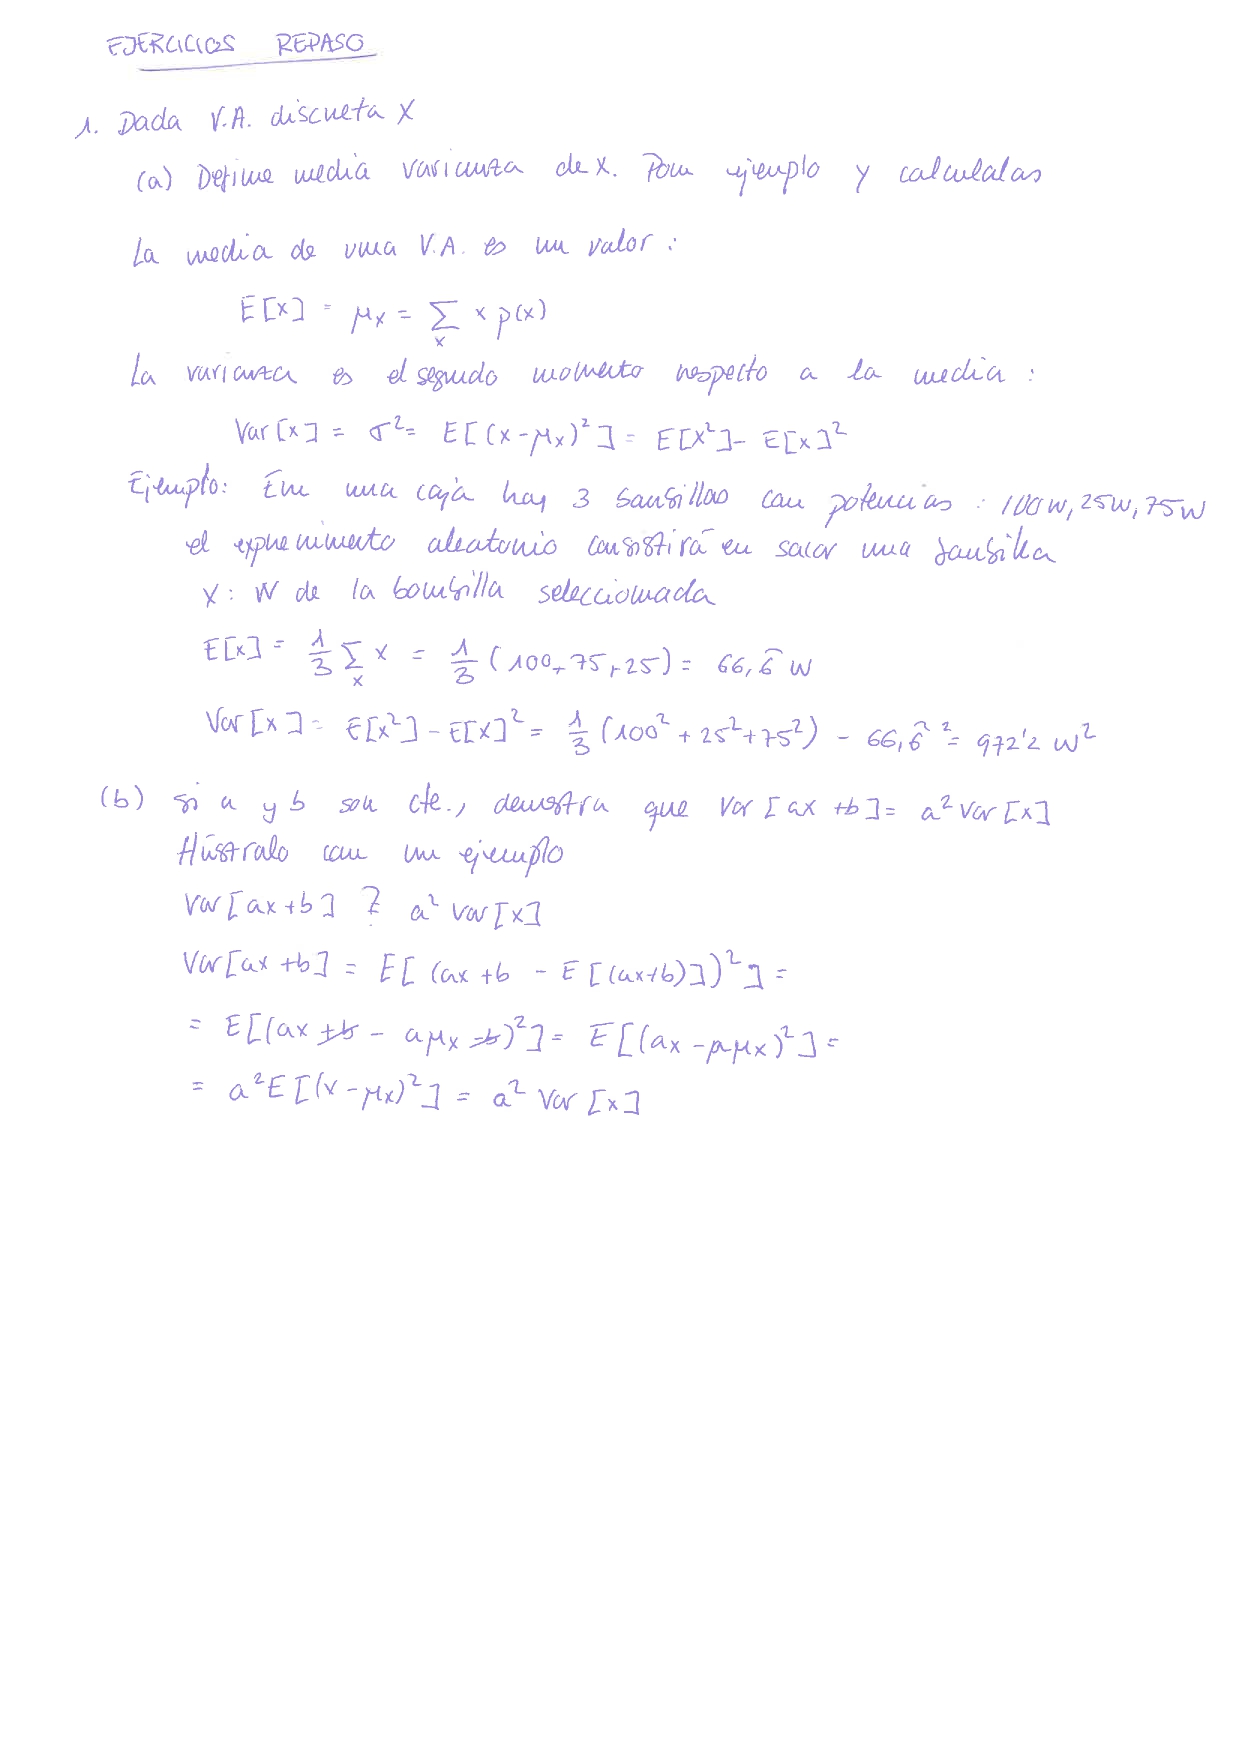 EJERCICIOS REPASO
1. Dada V.A. discreta X
(a) Define media varianza de X. Pon ejemplo y calculalas
La media de una V.A. es un valor:
E[x] = μx = Σx x p(x)
La varianza es el segundo momento respecto a la media:
Var[x] = σ² = E[(x-μx)²] = E[X²] - E[x]²
Ejemplo: En una caja hay 3 bombillas con potencias: 100W, 25W, 75W
el experimento aleatorio consistirá en sacar una bombilla
X: W de la bombilla seleccionada
E[x] = 1/3 Σx x = 1/3 (100+75+25) = 66,6̂ W
Var[x] = E[x²] - E[x]² = 1/3 (100² + 25² + 75²) - 66,6̂ ² = 972'2 W²
(b) si a y b son cte., demostra que Var [ax +b] = a² Var [x]
Ilústralo con un ejemplo
Var[ax+b] ? a² Var[x]
Var[ax +b] = E[(ax +b - E[(ax+b)])²] =
= E[(ax +b - aμx -b)²] = E[(ax - aμx)²] =
= a²E[(x-μx)²] = a² Var [x]